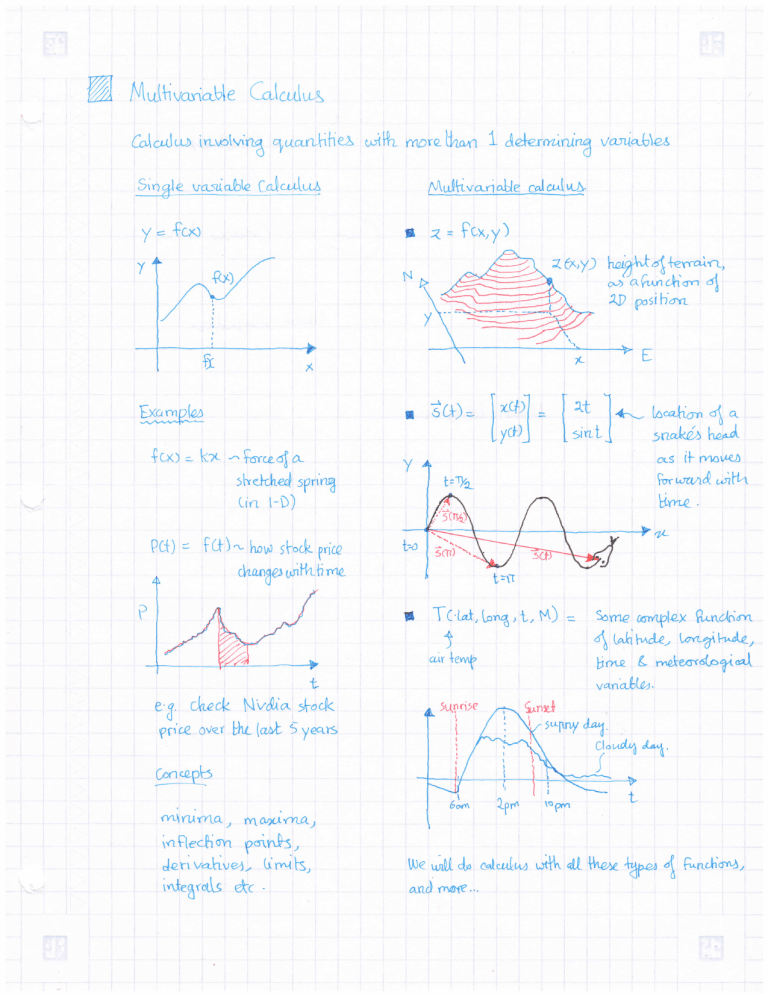 Multivariable Calculus
Calculus involving quantities with more than 1 determining variables
Single variable Calculus
y = f(x)
Y
f(x)
fx
x
Examples
f(x) = kx ~ force of a
stretched spring
(in 1-D)
P(t) = f(t) ~ how stock price
changes with time
P
t
e.g. check Nvdia stock
price over the last 5 years
Concepts
minima, maxima,
inflection points,
derivatives, limits,
integrals etc.
Multivariable calculus
z = f(x,y)
N
z(x,y)
height of terrain,
as a function of
2D position
y
x
E
s⃗(t) = [x(t) y(t)] = [2t sin t]
location of a
snake's head
as it moves
forward with
time.
Y
t=π/2
s⃗(π/2)
t=0
s⃗(π)
s⃗(t)
x
t=π
T(lat, long, t, M) =
air temp
Some complex function
of latitude, longitude,
time & meteorological
variables.
sunrise
Sunset
sunny day.
cloudy day.
6am
2pm
10pm
t
We will do calculus with all these types of functions,
and more...